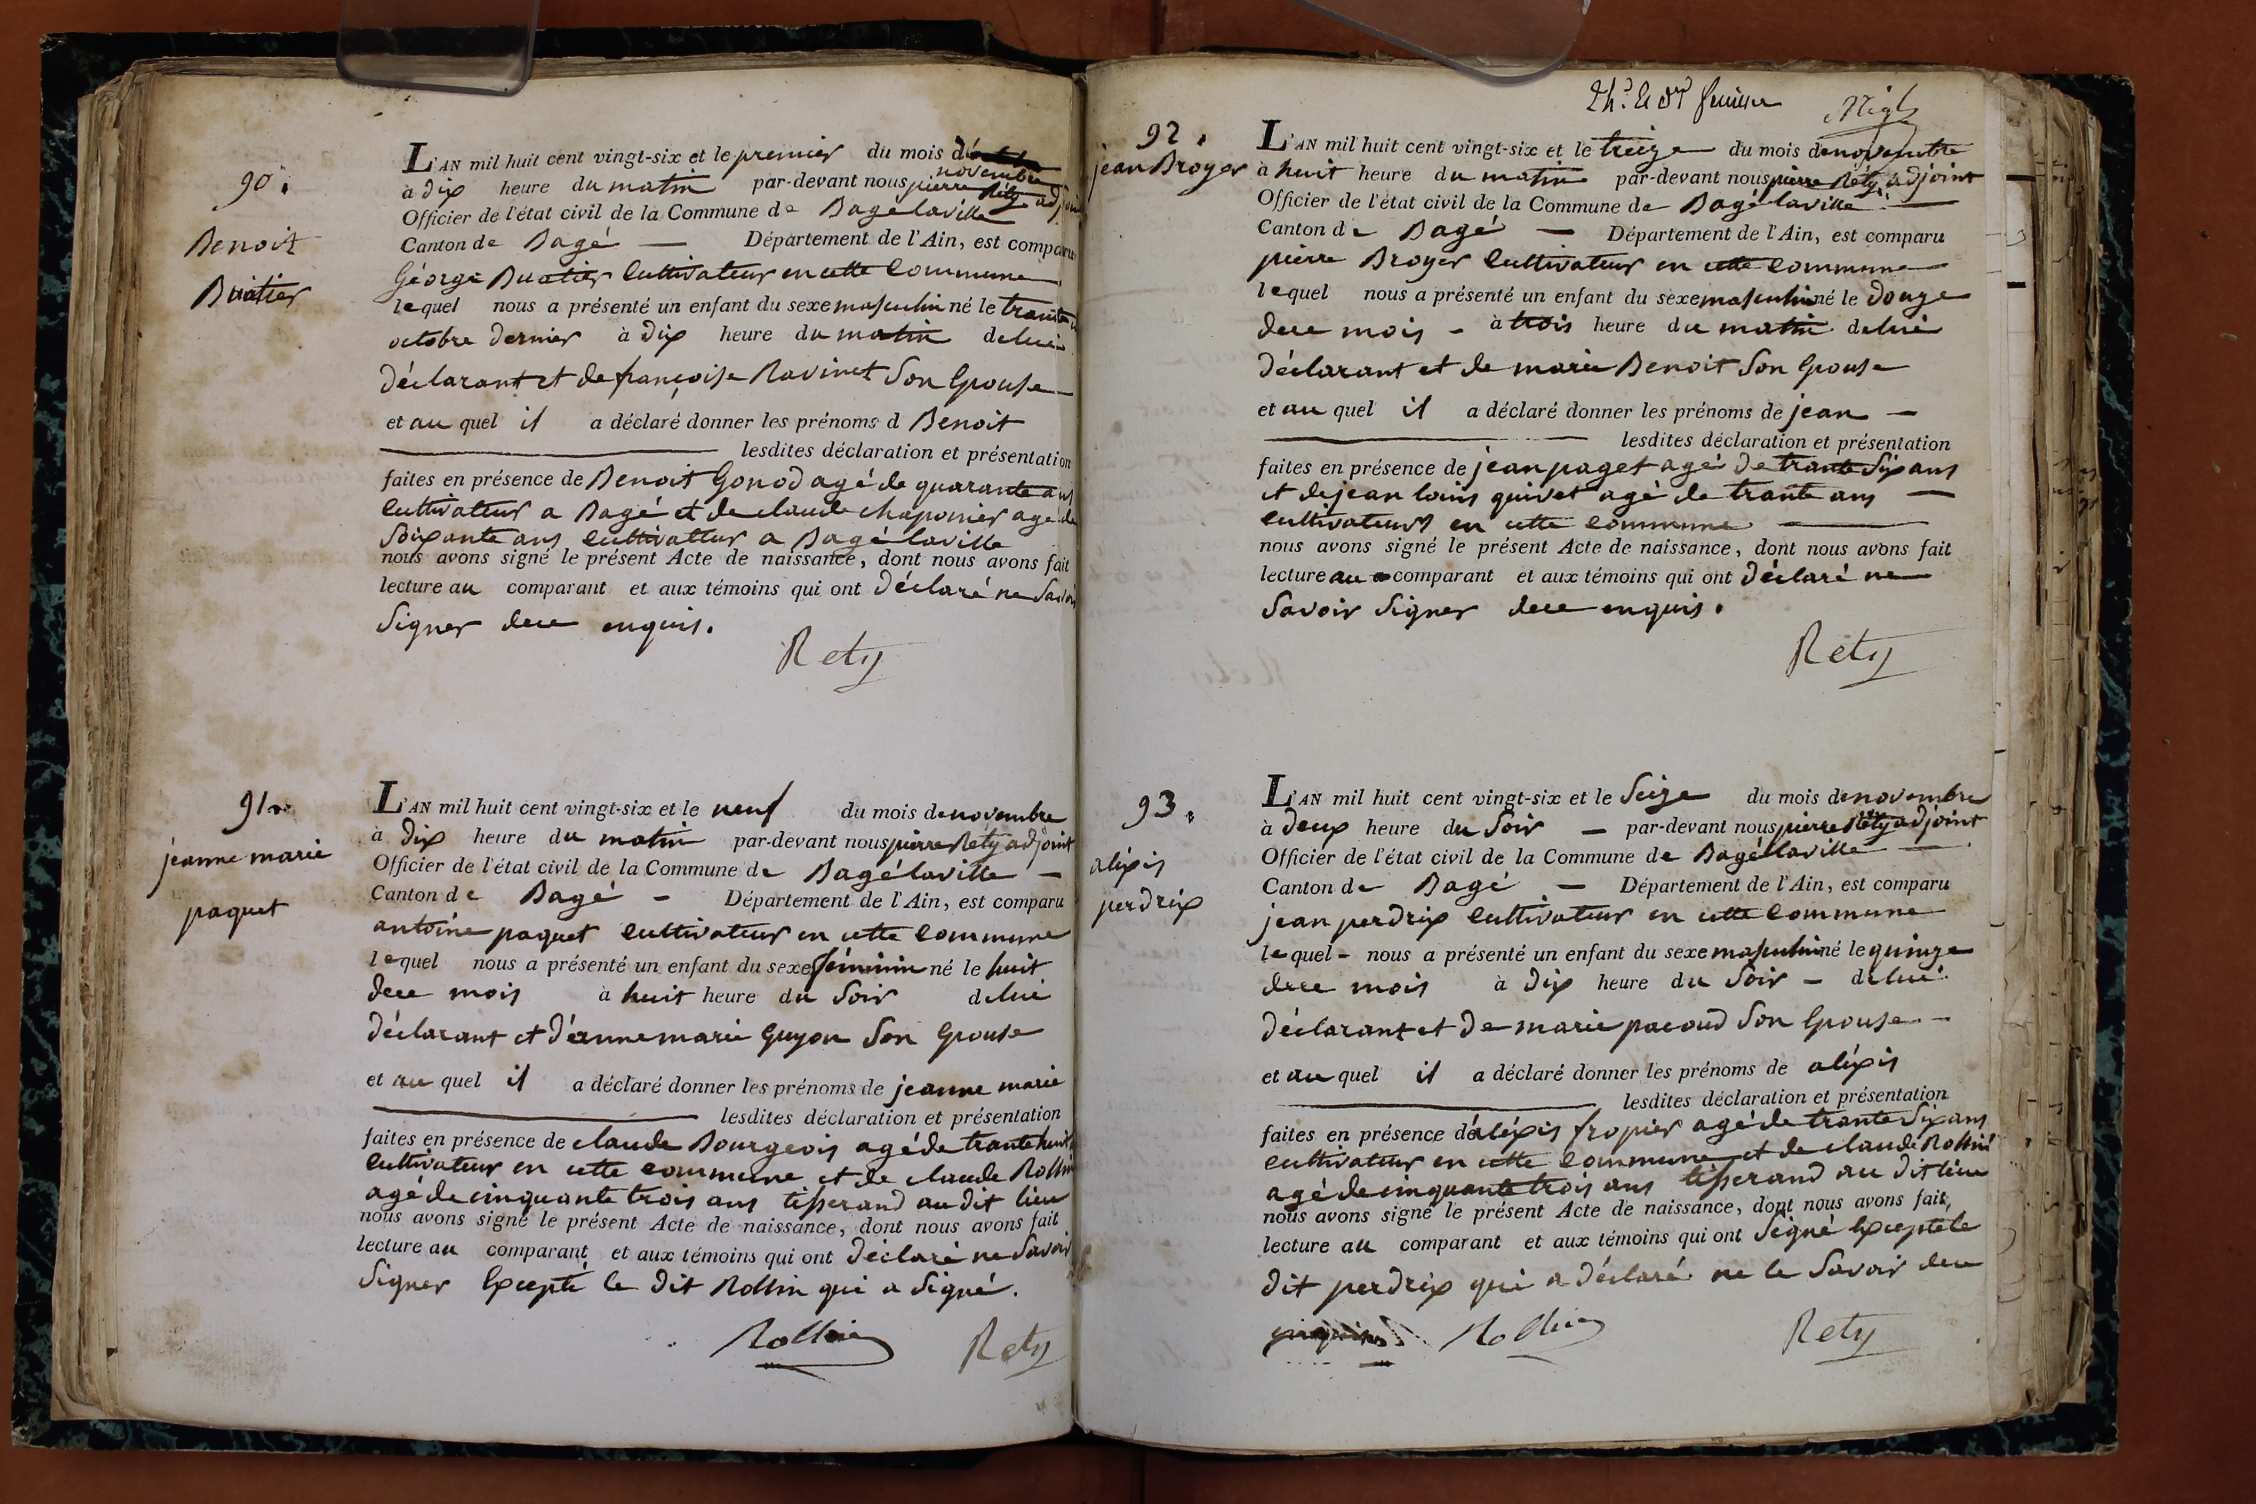 90.
Benoit
Buatier
L'AN mil huit cent vingt-six et le premier du mois de
novembre
à dix heure du matin par-devant nous pierre Réty adjoint
Officier de l'état civil de la Commune de Bagé laville
Canton de Bagé — Département de l'Ain, est comparu
Géorge Buatier Cultivateur en cette Commune
lequel nous a présenté un enfant du sexe masculin né le trante
octobre dernier à dix heure du matin de lui
déclarant et de françoise Ravinet Son Epouse —
et au quel il a déclaré donner les prénoms d Benoit
lesdites déclaration et présentation
faites en présence de Benoit Gonod agé de quarante ans
Cultivateur a Bagé et de claude chaponier agé de
Soixante ans Cultivateur a Bagé laville
nous avons signé le présent Acte de naissance, dont nous avons fait
lecture au comparant et aux témoins qui ont déclaré ne Savoir
Signer de ce enquis.
Rety
91.
jeanne marie
paquet
L'AN mil huit cent vingt-six et le neuf du mois de novembre
à dix heure du matin par-devant nous pierre Rety adjoint
Officier de l'état civil de la Commune de Bagé laville —
Canton de Bagé — Département de l'Ain, est comparu
antoine paquet Cultivateur en cette Commune
lequel nous a présenté un enfant du sexe féminin né le huit
de ce mois à huit heure du Soir de lui
déclarant et d'anne marie Guyon Son Epouse
et au quel il a déclaré donner les prénoms de jeanne marie
lesdites déclaration et présentation
faites en présence de claude Bourgeois agé de trante huit
Cultivateur en cette Commune et de claude Rollin
agé de cinquante trois ans tisserand au dit lieu
nous avons signé le présent Acte de naissance, dont nous avons fait
lecture au comparant et aux témoins qui ont déclaré ne Savoir
Signer Excepté le dit Rollin qui a Signé.
Rollin Rety
92.
jean Broyer
L'AN mil huit cent vingt-six et le treize du mois de novembre
à huit heure du matin par-devant nous pierre Réty adjoint
Officier de l'état civil de la Commune de Bagé laville —
Canton de Bagé — Département de l'Ain, est comparu
pierre Broyer Cultivateur en cette Commune —
lequel nous a présenté un enfant du sexe masculin né le douze
de ce mois - à trois heure du matin de lui
déclarant et de marie Benoit Son Epouse
et au quel il a déclaré donner les prénoms de jean —
lesdites déclaration et présentation
faites en présence de jean paget agé de trante Six ans
et de jean louis quivet agé de trante ans —
Cultivateurs en cette Commune —
nous avons signé le présent Acte de naissance, dont nous avons fait
lecture au comparant et aux témoins qui ont déclaré ne
Savoir Signer de ce enquis.
Rety
93.
aléxis
perdrix
L'AN mil huit cent vingt-six et le Seize du mois de novembre
à deux heure du Soir — par-devant nous pierre Réty adjoint
Officier de l'état civil de la Commune de Bagé laville —
Canton de Bagé — Département de l'Ain, est comparu
jean perdrix Cultivateur en cette Commune
lequel - nous a présenté un enfant du sexe masculin né le quinze
de ce mois à dix heure du Soir — de lui
déclarant et de marie pacoud Son Epouse. —
et au quel il a déclaré donner les prénoms de aléxis
lesdites déclaration et présentation
faites en présence d'aléxis fropier agé de trante Six ans
Cultivateur en cette Commune et de claude Rollin
agé de cinquante trois ans tisserand au dit lieu
nous avons signé le présent Acte de naissance, dont nous avons fait,
lecture au comparant et aux témoins qui ont Signé Excepté le
dit perdrix qui a déclaré ne le Savoir de ce
Rollin Rety